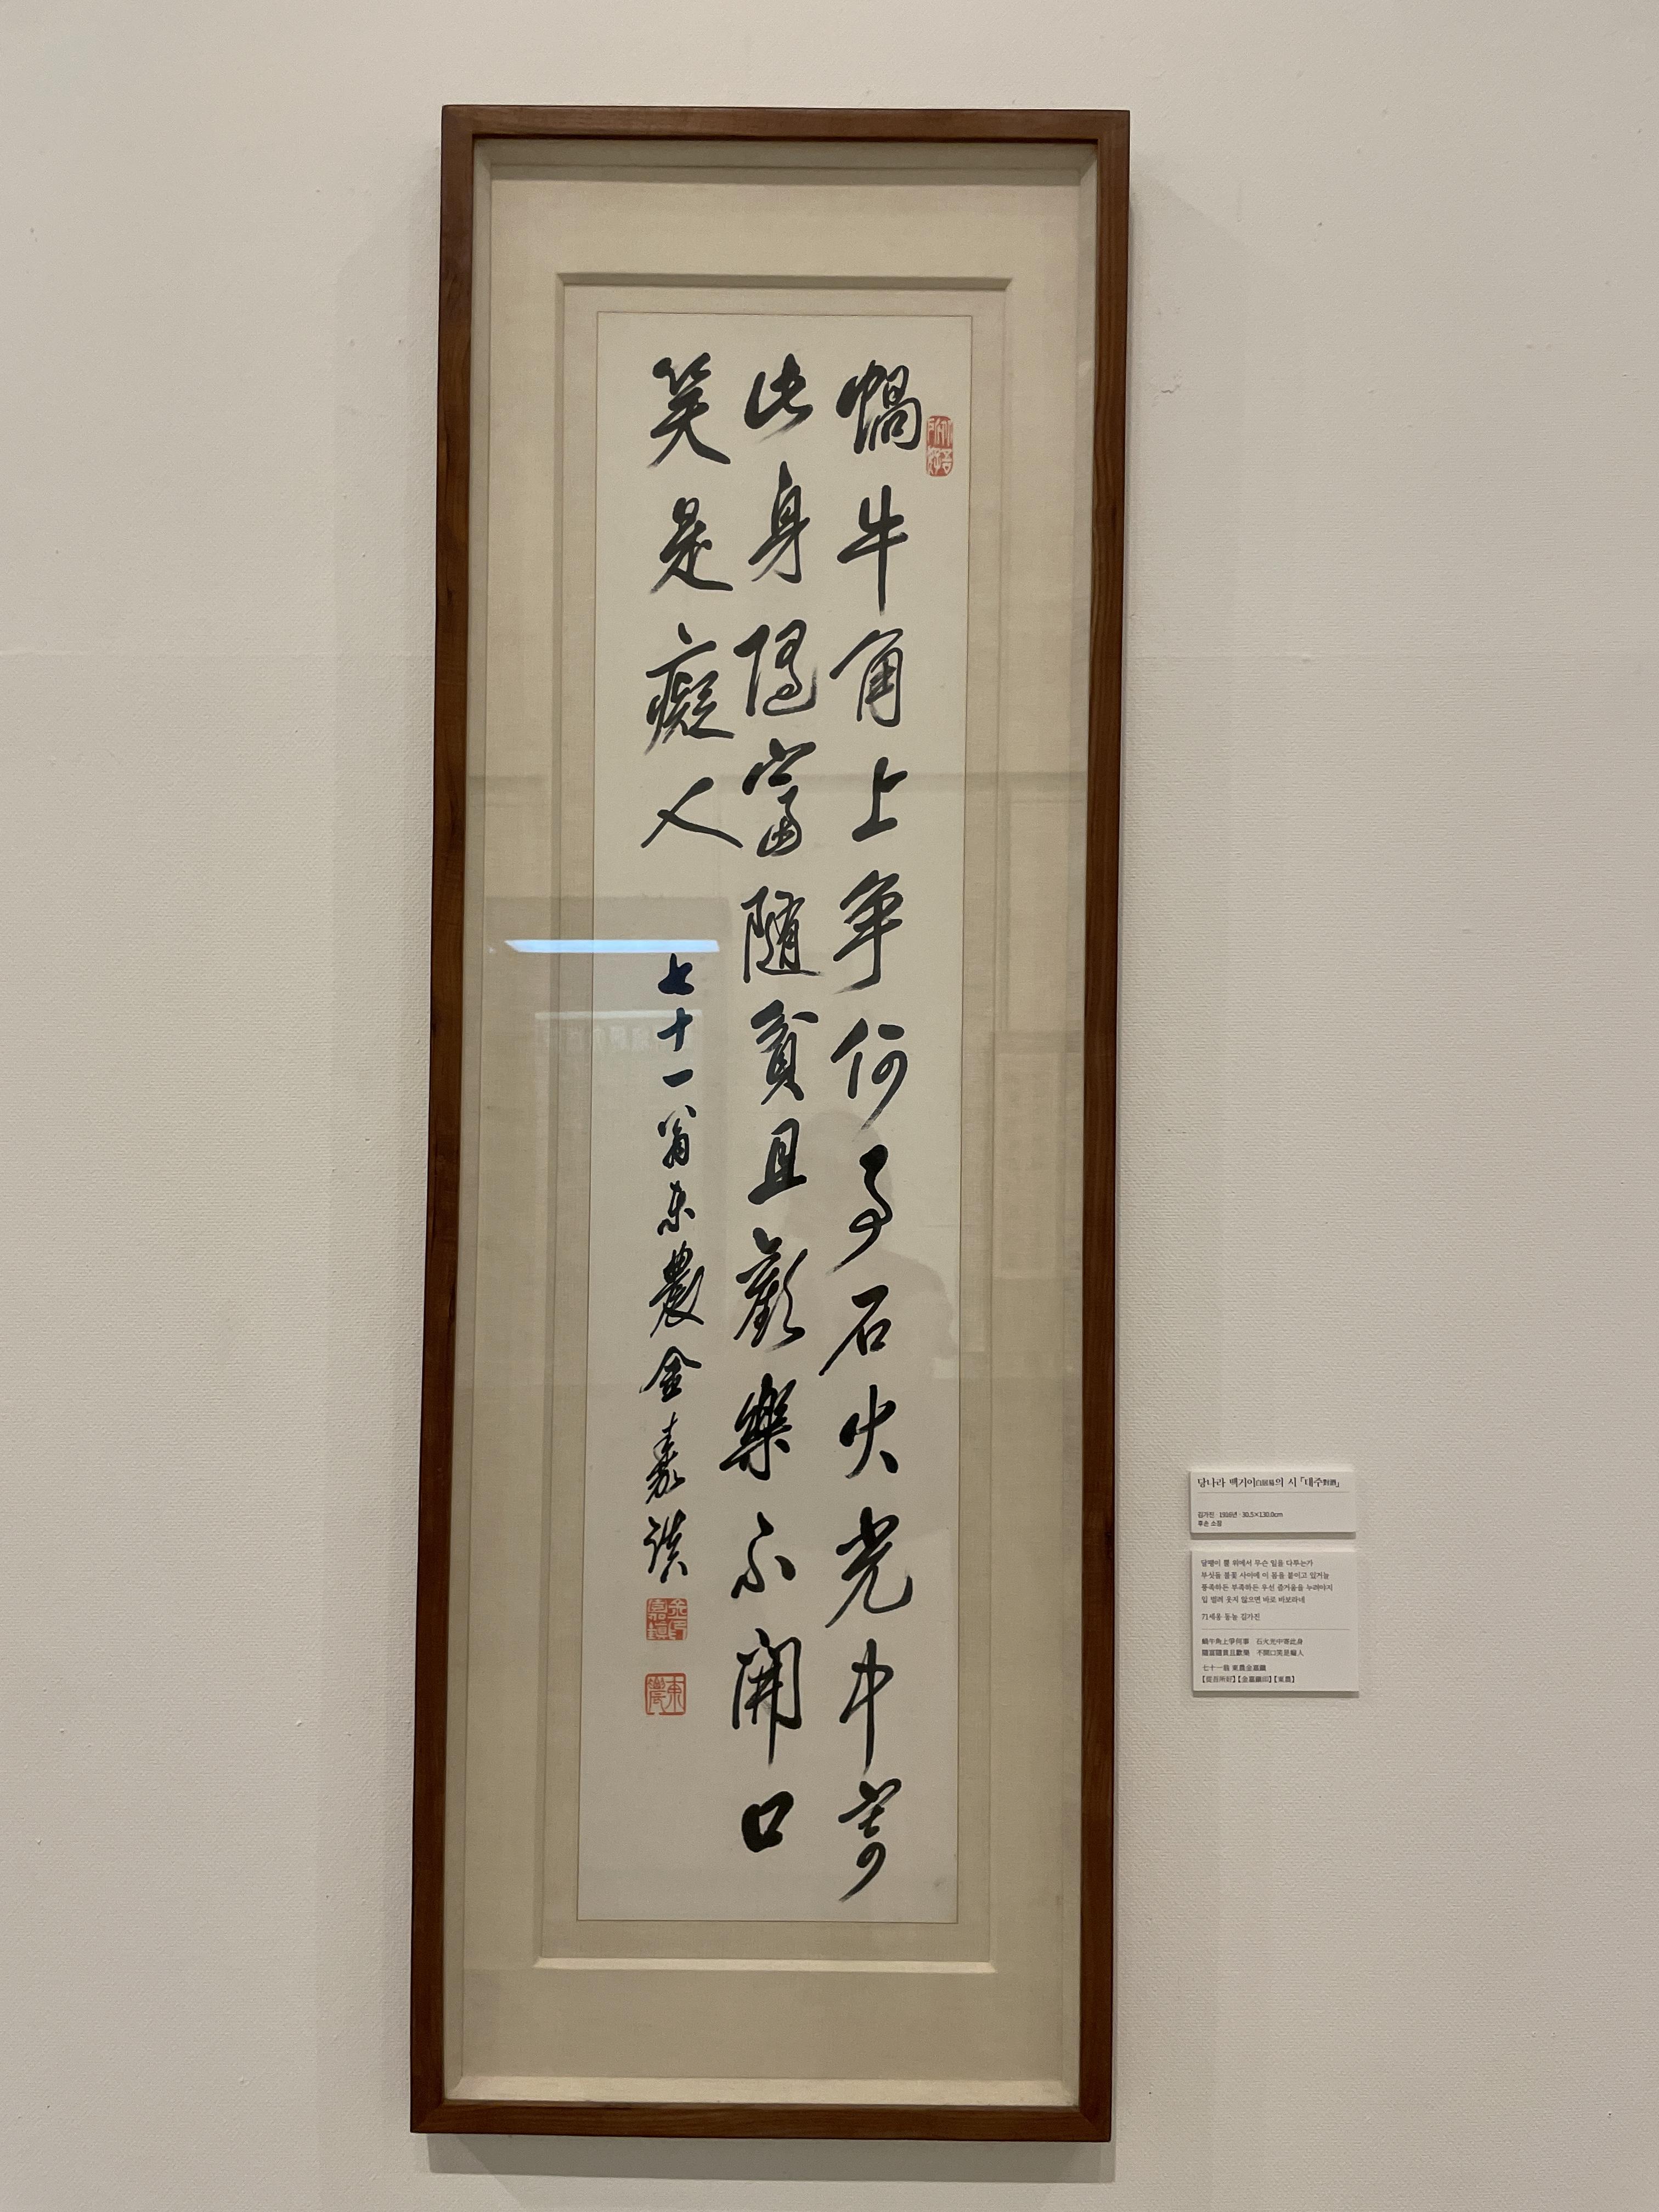 從吾所好
蝸牛角上爭何事石火光中寄
此身隨富随貧且歡樂不開口
笑是癡人
七十一翁東農金嘉鎮
金嘉鎭印
東農
당나라 백거이白居易의 시 「대주對酒」
김가진 1916년 · 30.5×130.0cm
후손 소장
달팽이 뿔 위에서 무슨 일을 다투는가
부싯돌 불꽃 사이에 이 몸을 붙이고 있거늘
풍족하든 부족하든 우선 즐거움을 누려야지
입 벌려 웃지 않으면 바로 바보라네
71세옹 동농 김가진
蝸牛角上爭何事 石火光中寄此身
隨富隨貧且歡樂 不開口笑是癡人
七十一翁 東農金嘉鎭
【從吾所好】【金嘉鎭印】【東農】